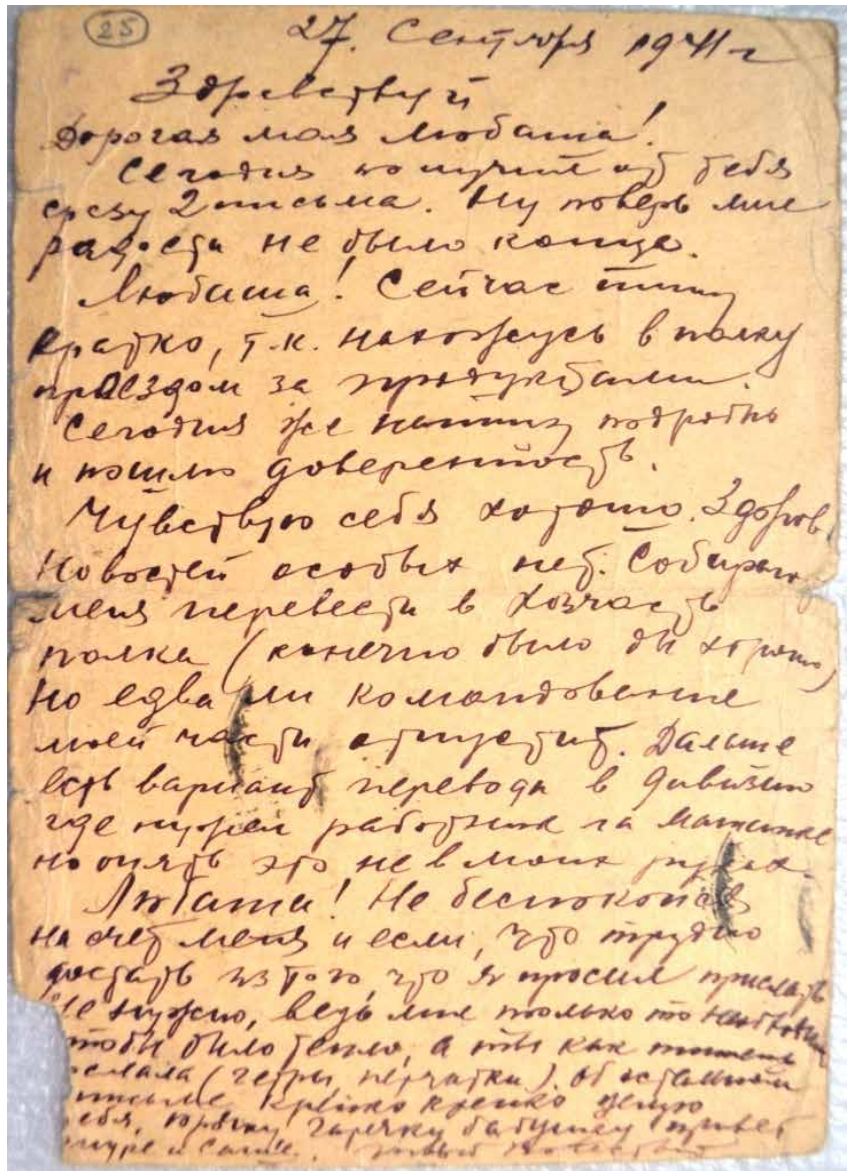 25
27. Сентября 1941 г
Здравствуй
Дорогая моя Любаша!
Сегодня получил от тебя
сразу 2 письма. Ну поверь мне
радости не было конца.
Любаша! Сейчас пишу
кратко, т.к. нахожусь в полку
проездом за продуктами.
Сегодня же напишу подробно
и пошлю доверенность.
Чувствую себя хорошо. Здоров.
Новостей особых нет. Собирают
меня перевести в хозчасть
полка (конечно было бы хорошо)
но едва ли командование
моей части отпустит. Дальше
есть вариант перевода в дивизию
где нужен работник на машинке
но опять это не в моих руках.
Любаша! Не беспокойся
на счет меня и если, что трудно
достать из того, что я просил прислать
не нужно, ведь мне только то
чтобы было тепло, а ты как пишешь
послала (гетры, перчатки). Об остальном
письме. Крепко крепко целую
тебя, Юрочку, бабушку привет
Шуре и Саше.